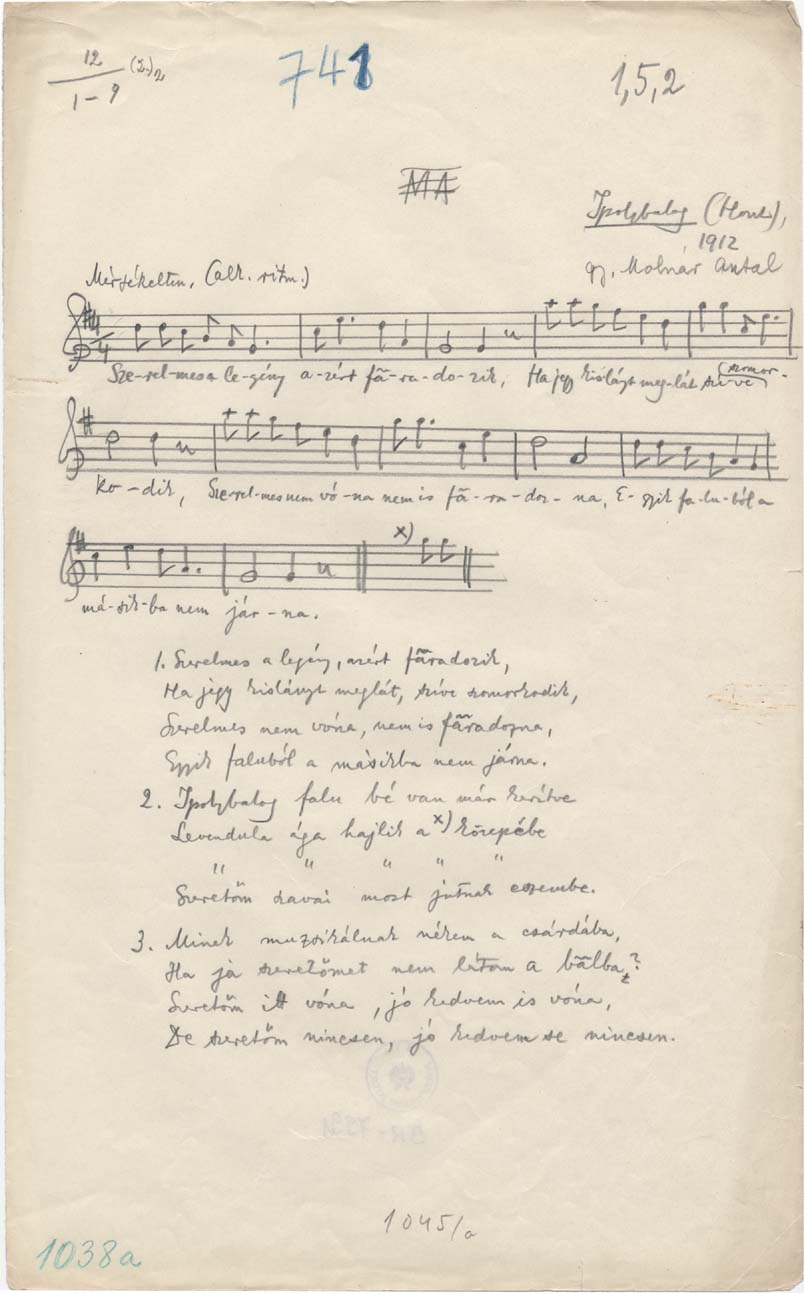 12
1-9 (Σ.)2
741
1,5,2
MA
Ipolybalog (Hont),
1912
gy. Molnár Antal
Mérsékelten, (alk. ritm.)
4/4
Sze-rel-mes a le-gény a-zért fā-ra-do-zik, Ha jegy kislányt meg-lát szí-ve (szomor-
ko-dik, Szerel-mes nem vó-na nem is fā-ra-doz-na, E-gyik fa-lu-ból a
x)
má-sik-ba nem jár-na.
1. Szerelmes a legény, azért fāradozik,
Ha jegy kislányt meglát, szíve szomorkodik,
Szerelmes nem vóna, nem is fāradozna,
Egyik faluból a másikba nem járna.
2. Ipolybalog falu bé van már kerítve
Levendula ága hajlik a x) közepébe
" " " " "
Szeretőm szavai most jutnak eszembe.
3. Minek muzsikálnak nékem a csárdába,
Ha já szeretőmet nem látom a bālba?
Szeretőm itt vóna, jó kedvem is vóna,
De szeretőm nincsen, jó kedvem se nincsen.
1045/a
1038a